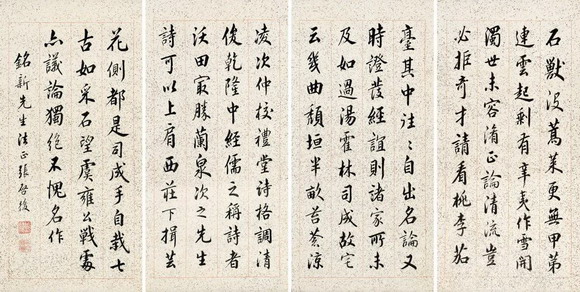 石獸没蒿萊更無甲第
連雲起剩有辛夷作雪開
濁世未容淆正論清流豈
必拒奇才請看桃李茄
臺其中往〻自出名論又
時證發經誼則諸家所未
及如過湯霍林司成故宅
云幾曲頹垣半畝苔蒼涼
凌次仲校禮堂詩格調清
俊乾隆中經儒之稱詩者
沃田最勝蘭泉次之先生
詩可以上肩西莊下揖芸
花側都是司成手自栽七
古如采石望虞雍公戰處
亦議論獨絕不愧名作
銘新先生法正張啓後